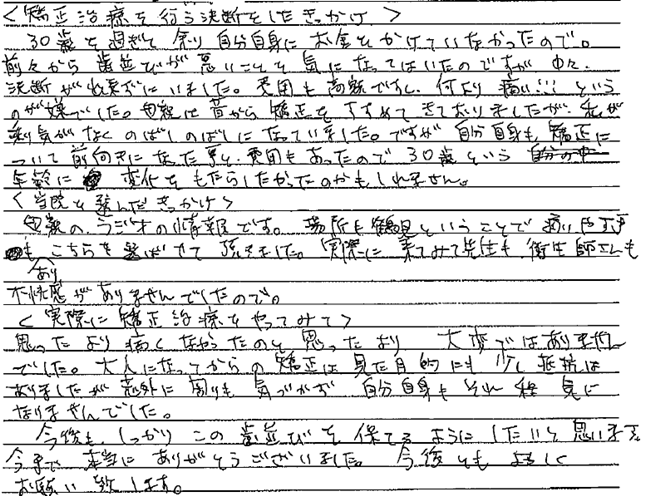 <矯正治療を行う決断をしたきっかけ>
30歳を過ぎて余り自分自身にお金をかけていなかったので。
前々から歯並びが悪いことを気になってはいたのですが中々、
決断が出来ずにいました。費用も高額ですし、何より痛い!!!という
のが嫌でした。母親は昔から矯正をすすめてきておりましたが、私が
勇気がなくのばしのばしになっていました。ですが自分自身も矯正に
ついて前向きになった事と、費用もあったので30歳という
年齢に 変化をもたらしたかったのかもしれません。
<当院を選んだきっかけ>
母親の、ラジオの情報です。場所も鶴見ということで通いやすさ
もあり こちらを選ばせて頂きました。実際に来てみて先生も、衛生師さんも
不快感がありませんでしたので。
<実際に矯正治療をやってみて>
思ったより痛くなかったのと思ったより 大変ではありません
でした。大人になってからの矯正は見た目的にも少し抵抗は
ありましたが意外に周りも気づかず 自分自身もそれ程気に
なりませんでした。
今後も、しっかりこの歯並びを保てるようにしたいと思います。
今まで本当にありがとうございました。今後ともよろしく
お願い致します。